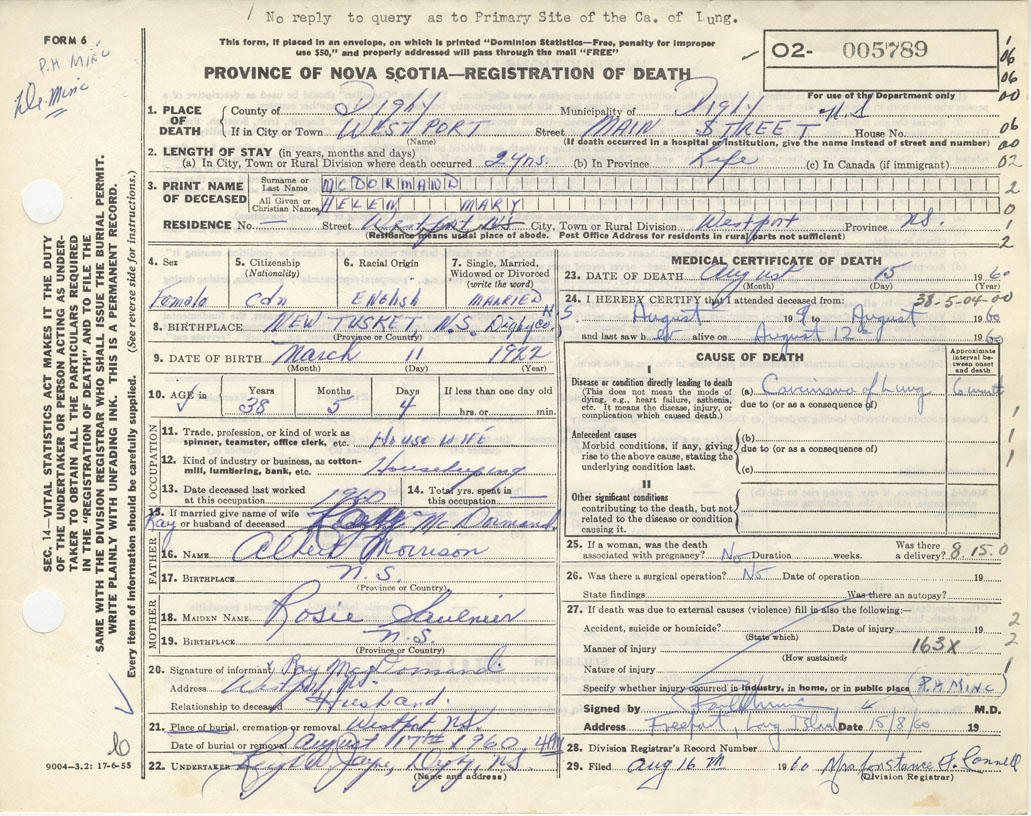 No reply to query as to Primary Site of the Ca. of Lung.
FORM 6
P.H MINC
De. Minc
This form, if placed in an envelope, on which is printed "Dominion Statistics—Free, penalty for improper
use $50," and properly addressed will pass through the mail "FREE"
O2- 005789
For use of the Department only
PROVINCE OF NOVA SCOTIA—REGISTRATION OF DEATH
1. PLACE OF DEATH County of Digby Municipality of Digby N.S
If in City or Town WESTPORT Street MAIN STREET House No.
(Name) (If death occurred in a hospital or institution, give the name instead of street and number)
2. LENGTH OF STAY (in years, months and days)
(a) In City, Town or Rural Division where death occurred 2 yrs. (b) In Province Life (c) In Canada (if immigrant)
3. PRINT NAME OF DECEASED Surname or Last Name MCDORMAND
All Given or Christian Names HELEN MARY
RESIDENCE No. — Street Westport NS City, Town or Rural Division Westport Province NS.
(Residence means usual place of abode. Post Office Address for residents in rural parts not sufficient)
06
06
00
06
00
02
2
0
1
2
SEC. 14—VITAL STATISTICS ACT MAKES IT THE DUTY
OF THE UNDERTAKER OR PERSON ACTING AS UNDER-
TAKER TO OBTAIN ALL THE PARTICULARS REQUIRED
IN THE "REGISTRATION OF DEATH" AND TO FILE THE
SAME WITH THE DIVISION REGISTRAR WHO SHALL ISSUE THE BURIAL PERMIT.
WRITE PLAINLY WITH UNFADING INK. THIS IS A PERMANENT RECORD.
Every item of information should be carefully supplied. (See reverse side for instructions.)
4. Sex
Female
5. Citizenship
(Nationality)
Cdn
6. Racial Origin
ENGLISH
7. Single, Married,
Widowed or Divorced
(write the word)
MARRIED
8. BIRTHPLACE NEW TUSKET, N.S. Digby Co. N.S.
(Province or Country)
9. DATE OF BIRTH March 11 1922
(Month) (Day) (Year)
10. AGE in Years Months Days If less than one day old
38 5 4 hrs. or min.
OCCUPATION
11. Trade, profession, or kind of work as
spinner, teamster, office clerk, etc. HOUSEWIFE
12. Kind of industry or business, as cotton-
mill, lumbering, bank, etc. Housekeeping
13. Date deceased last worked
at this occupation 1960
14. Total yrs. spent in
this occupation —
15. If married give name of wife
or husband of deceased Ray McDormand
FATHER
16. NAME Albert Morrison
17. BIRTHPLACE N.S.
(Province or Country)
MOTHER
18. MAIDEN NAME Rosie Saulnier
19. BIRTHPLACE N.S.
(Province or Country)
20. Signature of informant x Ray McDormand.
Address Westport NS.
Relationship to deceased Husband.
21. Place of burial, cremation or removal Westport NS
Date of burial or removal August 17th 1960
22. UNDERTAKER Digby, NS.
(Name and address)
9004—3.2: 17-6-55
MEDICAL CERTIFICATE OF DEATH
23. DATE OF DEATH August 15 1960
(Month) (Day) (Year)
38-5-04-00
24. I HEREBY CERTIFY that I attended deceased from:
August 9 to August 1960
and last saw her alive on August 12th 1960
CAUSE OF DEATH
Approximate
interval between
onset
and death
I
Disease or condition directly leading to death
(This does not mean the mode of
dying, e.g., heart failure, asthenia,
etc. It means the disease, injury, or
complication which caused death.)
(a) Carcinoma of Lung 6 months
due to (or as a consequence of)
Antecedent causes
Morbid conditions, if any, giving
rise to the above cause, stating the
underlying condition last.
(b)
due to (or as a consequence of)
(c)
1
1
1
II
Other significant conditions
contributing to the death, but not
related to the disease or condition
causing it.
25. If a woman, was the death
associated with pregnancy? No Duration weeks. Was there
a delivery?
8.15.0
26. Was there a surgical operation? No Date of operation 19
State findings Was there an autopsy?
27. If death was due to external causes (violence) fill in also the following:—
Accident, suicide or homicide? Date of injury 19
(State which)
Manner of injury 163X
(How sustained)
Nature of injury
2
2
1
Specify whether injury occurred in industry, in home, or in public place (P.H MINC)
Signed by M.D.
Address Freeport, Long Island Date 15/8/60 19
28. Division Registrar's Record Number
29. Filed Aug 16th 1960 Mrs Constance F. Connell
(Division Registrar)